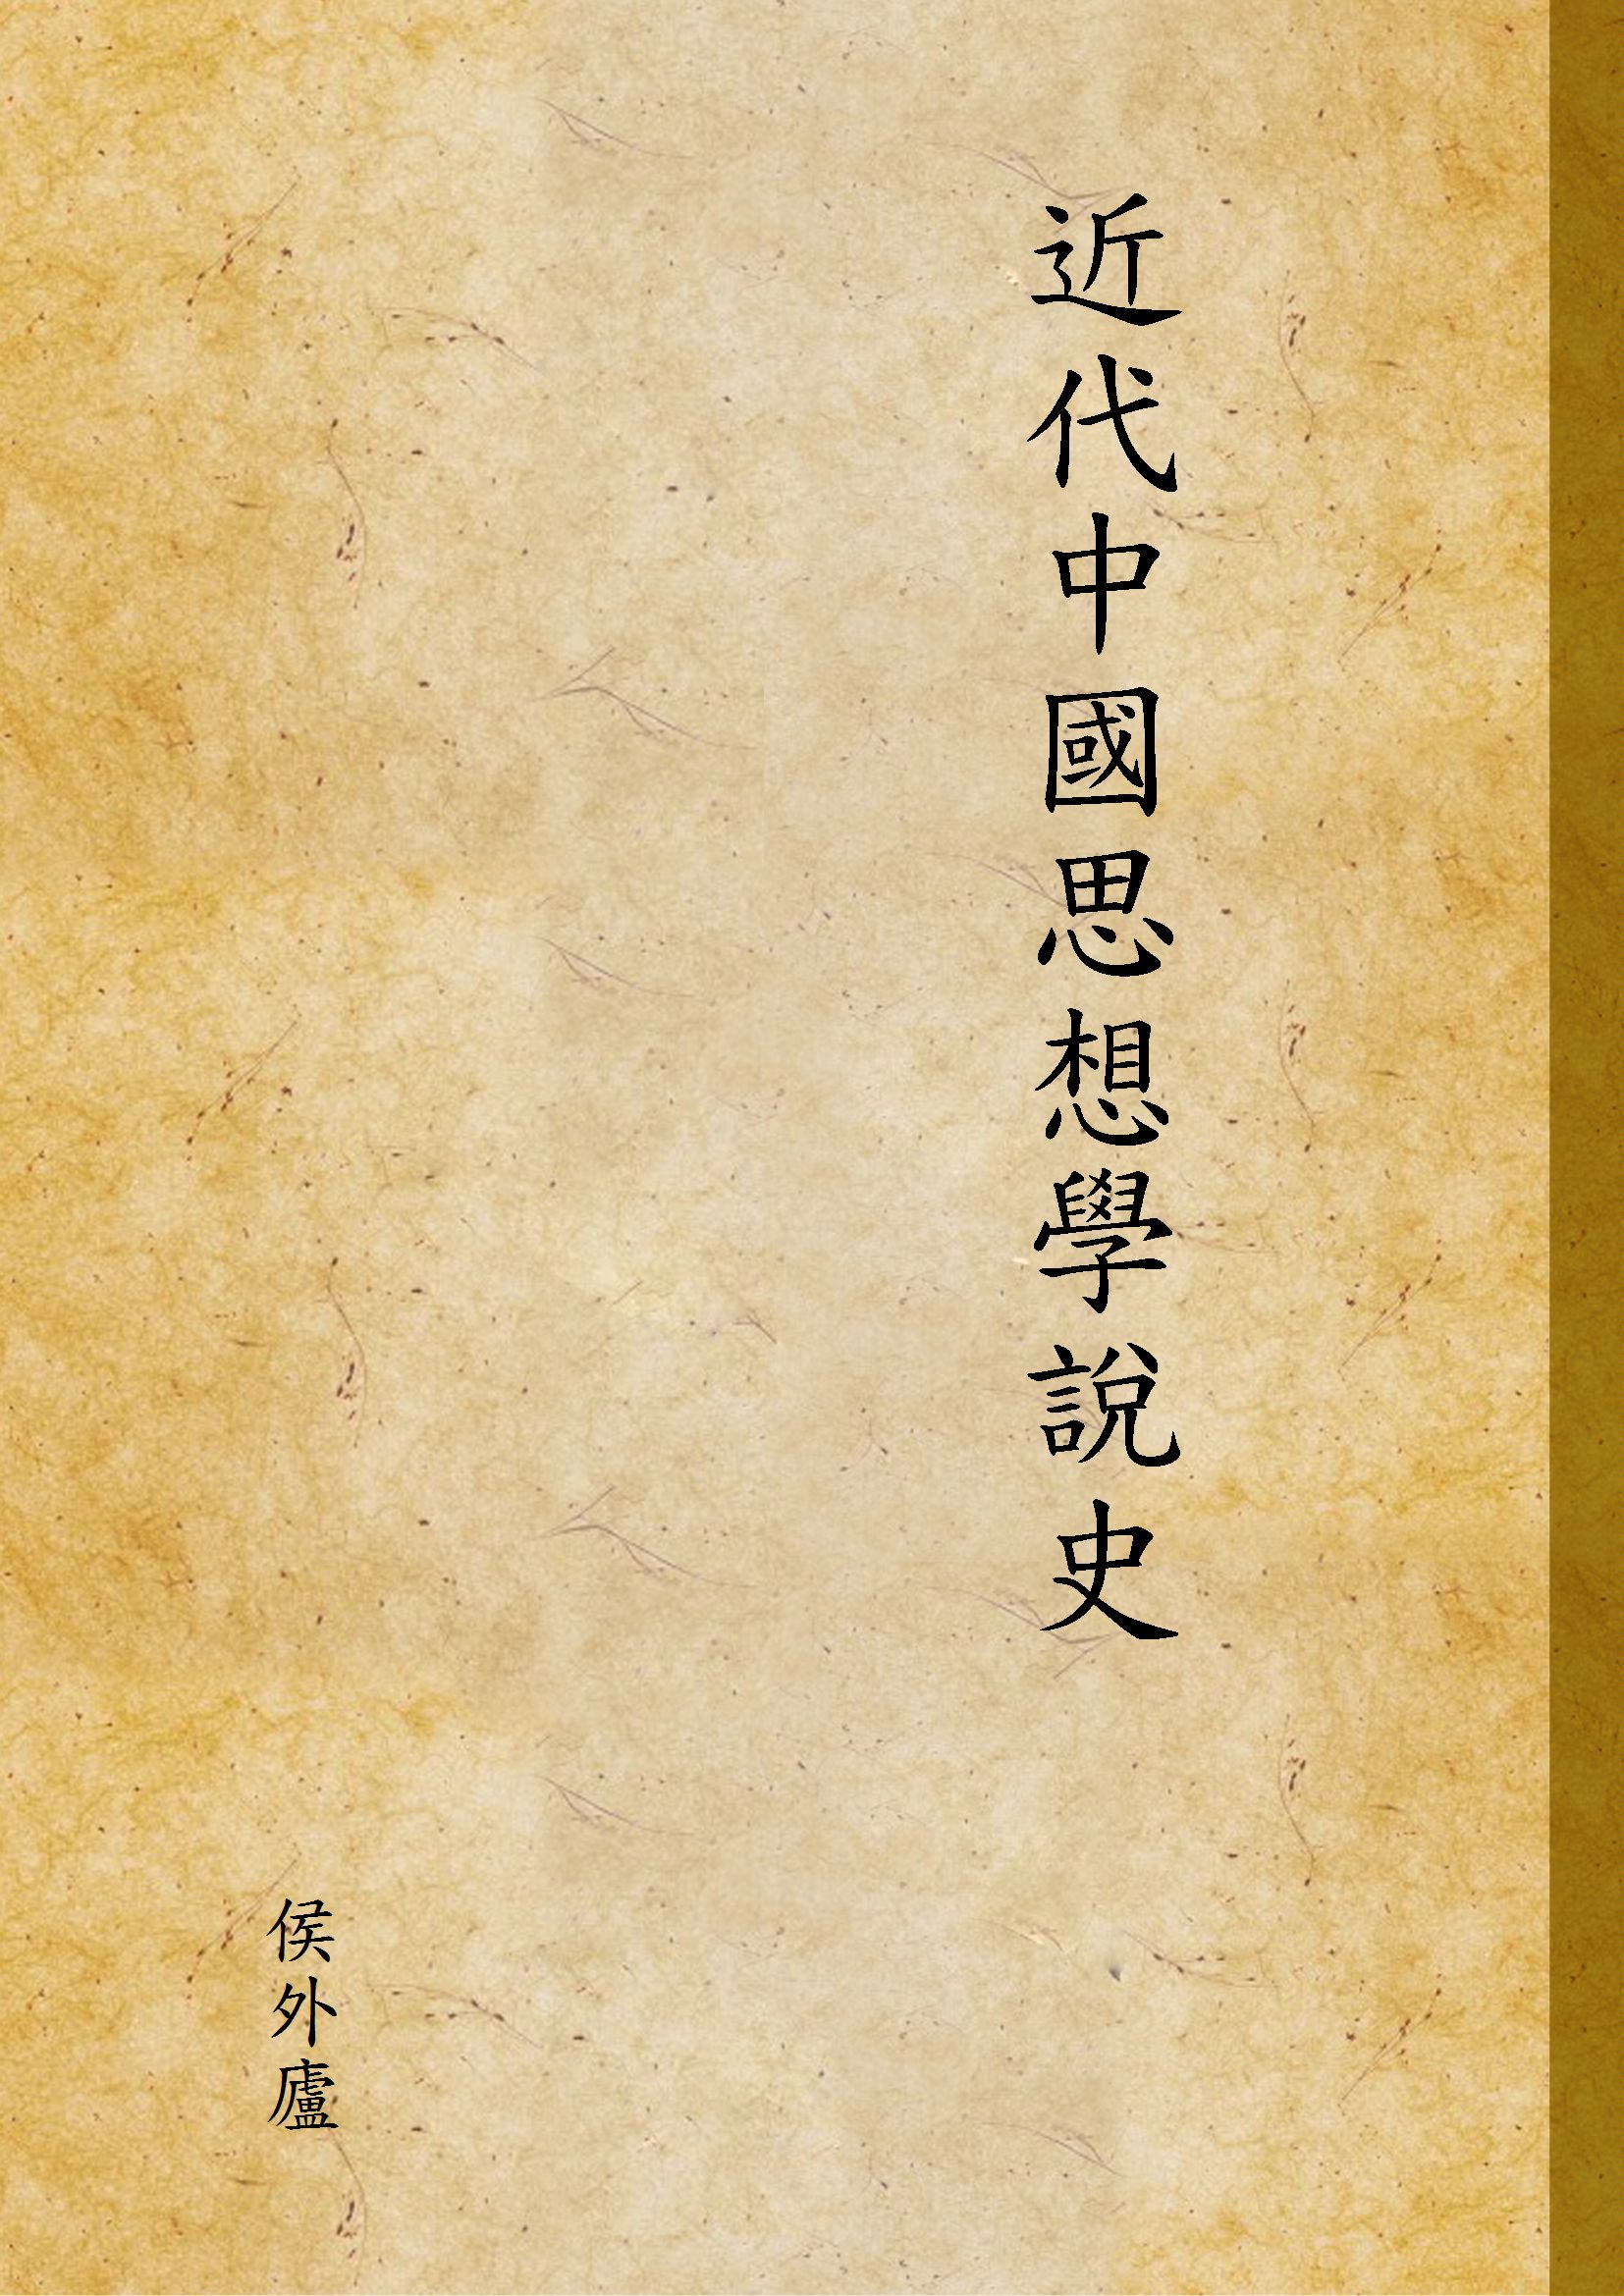 近代中國思想學說史
侯外廬